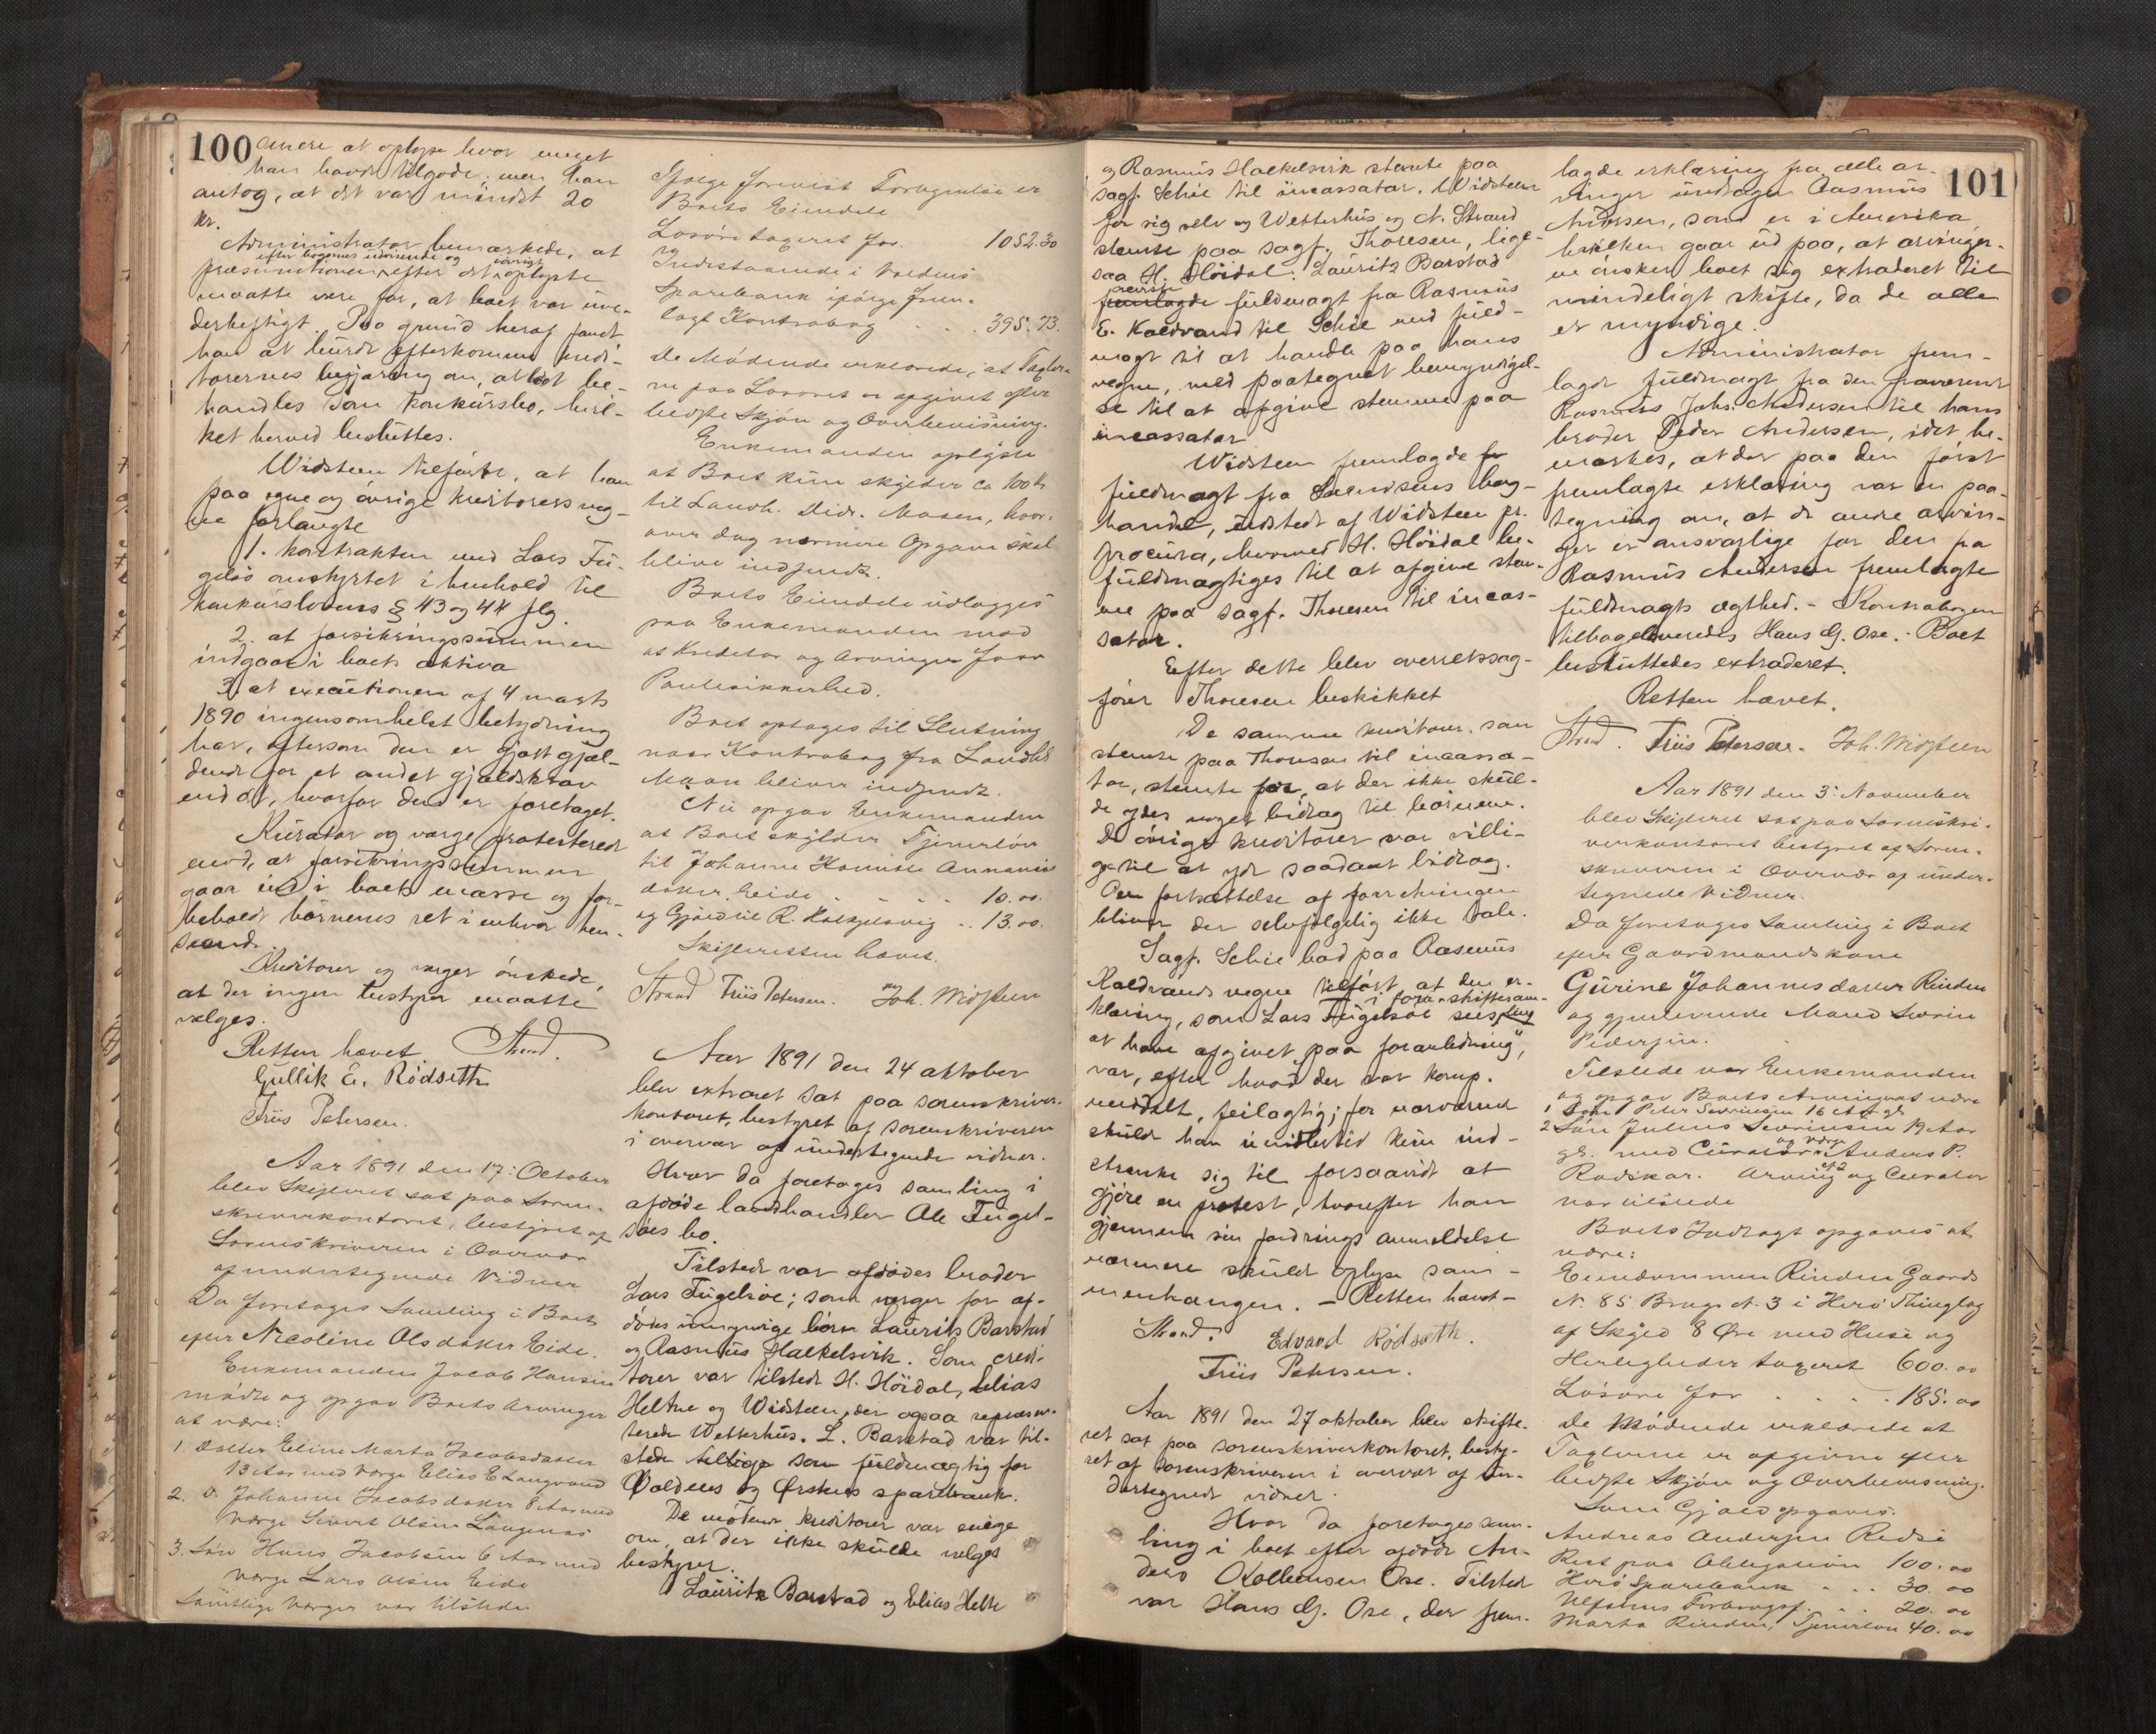 100
anere at oplyse hvor meget
han havde tilgode; men han
antog, at det var mindst 20
kr.
Administrator bemærkede, at
efter bogernes udvisende og øvrigt
præsumtionen efter det oplyste
maatte være for, at boet var uve-
derheftigt. Paa grund heraf fandt
han at burde efterkomme kredi-
torernes begjæring om, at det be-
handles som konkursbo, hvil-
ket herved besluttes.
Widsteen tilførte, at han
paa egne og øvrige kreditorers veg-
ne forlangte
1. kontrakten med Lars Fu-
gelsø omstyrtet i henhold til
konkurslovens § 43 og 44 flg.
2. at forsikringssummen
indgaar i boets aktiva
3. at executionen af 4 marts
1890 ingensomhelst betydning
har, eftersom den er gjort gjæl-
dende for et andet gjældskrav
end det, hvorfor den er foretaget.
Kurator og værge protesterede
mod, at forsikringssummen
gaar ind i boets masse og for-
beholdt børnenes ret i enhver hen-
seende.
Kreditorer og værger ønskede,
at der ingen bestyrer maatte
vælges.
Retten hævet. Strand.
Gullik E. Rødseth
Friis Petersen.
Aar 1891 den 17: October
blev Skifteret sat paa Soren-
skriverkontoret, bestyret af
Sorenskriveren i Overvær
af undertegnede Vidner
Da foretages Samling i Boet
efter Nicoline Olsdatter Eide.
Enkemanden Jacob Hansen
mødte og opgav Boets Arvinger
at være:
1. Datter Eline Marta Jacobsdatter
13 Aar med Værge Elias E Langvand
2. D. Johanne Jacobsdatter 8 Aar med
Værge Sivert Olsen Langenæs
3. Søn Hans Jacobsen 6 Aar med
Værge Lars Olsen Eide
Samtlige Værger var tilstede
Ifølge forevist Fortegnelse er
Boets Eiendele
Løsøre taxeret for. 1052.30
og
Indestaaende i Voldens
Sparebank ifølge frem-
lagt Kontrabog . . . 395.73.
De Mødende erklærede, at Taxter-
ne paa Løsøret er afgivet efter
bedste Skjøn og Overbevisning.
Enkemanden oplyste
at Boet kun skylder ca 100 kr
til Landh. Didr. Maaen, hvor-
over dog nærmere Opgave skal
blive indsendt.
Boets Eiendele udlægges
paa Enkemanden mod
at Kreditor og Arvinger faar
Pantesikkerhed.
Boet optages til Slutning
naar Kontrabog fra Landhl
Maaen bliver indsendt.
Nu opgav Enkemanden
at Boet skylder Tjenerløn
til Johanne Annanias
datter Eide . . . . 10.00.
og Gjæld til R. . . 13.00.
Skifteretten hævet.
Strand Friis Petersen. Joh. Widsteen
Aar 1891 den 24 oktober
blev extraret sat paa sorenskriver-
kontoret, bestyret af sorenskriveren
i overvær af undertegnede vidner.
Hvor da foretages samling i
afdøde landhandler Ole Fugel-
søes bo.
Tilstede var afdødes broder
Lars Fugelsøe; som værger for af-
dødes umyndige børn Lauritz Barstad
og Rasmus Halkelsvik. Som credi-
torer var tilstede H. Höidal, Elias
Heltne og Widsteen, der ogsaa repræsen-
terede Wetterhus. L. Barstad var til-
stede tillige som fuldmægtig for
Voldens og Ørstens sparebank.
De mødende kreditorer var enige
om, at der ikke skulde vælges
bestyrer.
Lauritz Barstad og Elias Helte
og Rasmus Halkelsvik stemte paa
sagf. Schie til incassator. Widsteen
for sig selv og Wetterhus og N. Strand
stemte paa sagf. Thoresen, lige-
saa H. Höidal. Lauritz Barstad
fremlagde fuldmagt fra Rasmus
E. Kaldvand til Schie med fuld-
magt til at handle paa hans
vegne, med paategnet bemyndigel-
se til at afgive stemme paa
incassator
Widsteen fremlagde
fuldmagt fra bog-
handel, udstedt af Widsteen pr.
procura, hvorved H. Höidal be-
fuldmægtiges til at afgive stem-
me paa sagf. Thoresen til incas-
sator.
Efter dette blev overretssag-
fører Thoresen beskikket
De samme kreditorer som
stemte paa Thoresen til incassa-
tor, stemte for, at der ikke skul-
de ydes noget bidrag til børnene.
De øvrige kreditorer var villi-
ge til at yde saadant bidrag.
Om fortsættelse af forretningen
bliver der selvfølgelig ikke tale.
Sagf. Schie bad paa Rasmus
Kaldvands vegne tilført at den er-
i foran skiftesam-
klæring, som Lars Fugelsøe sees ling
at have afgivet „paa foranledning",
var, efter hvad der var komp.
meddelt, feilagtig; for nærværende
skulde han imidlertid kun ind-
skrænke sig til forsaavidt at
gjøre en protest, hvorefter han
gjennem sin fordrings anmeldelse
nærmere skulde oplyse sam-
menhængen. - Retten hævet -
Strand. Edvard Rödseth.
Friis Petersen.
Aar 1891 den 27 oktober blev skifte-
ret sat paa sorenskriverkontoret, besty-
ret af sorenskriveren i overvær af un-
dertegnede vidner.
Hvor da foretages sam-
ling i boet efter afdøde An-
ders Kolbensen Ose. Tilstede
var Hans G. Ose, der frem-
101
lagde erklæring fra alle ar-
vinger undtagen Rasmus
Andersen, som er i Amerika,
hvilken gaar ud paa, at arvinger-
ne ønsker boet sig extraderet til
mindeligt skifte, da de alle
er myndige.
Administrator frem-
lagde fuldmagt fra den fraværende
Rasmus Johs. Andersen til hans
broder Peder Andersen, idet be-
mærkes, at der paa den først
fremlagte erklæring var en paa-
tegning om, at de andre arvin-
ger er ansvarlige for den fra
Rasmus Andersen fremlagte
fuldmagts ægthed. - Kontrabogen
tilbageleveredes Hans G. Ose. - Boet
besluttedes extraderet.
Retten hævet.
Strand. Friis Petersen. Joh. Widsteen
Aar 1891 den 3: November
blev Skifteret sat paa Sorenskri-
verkontoret bestyret af Soren-
skriveren i Overvær af under-
tegnede Vidner.
Da foretages Samling i Boet
efter Gaardmandskone
Gurine Johannesdatter Rinden
og gjenlevende Mand Severin
Pedersen.
Tilstede var Enkemanden
og opgav Boets Arvinger at være
1 Søn Peter Severinsen 16 Aar gl
2 Søn Julius Severinsen 19 Aar
og Værge
gl. med Curator Anders P.
Rødskar. Arving No 2 og Curator
var tilstede
Boets Indtægt opgaves at
være:
Eiendommen Rinden Gaards
N. 85 Brugs N. 3 i Herø Thinglag
af Skyld 8 Øre med Huse og
Herligheder taxeret 600.00
Løsøre for . . . . 185.00
De Mødende erklærede at
Taxterne er afgivne efter
bedste Skjøn og Overbevisning.
Som Gjæld opgaves:
Andreas Andersen
Rest paa Obligation 100.00
Herø Sparebank . . . 30.00
Forbrugsf. . . 20.00
Marta Rinden, Tjenerløn 40.00